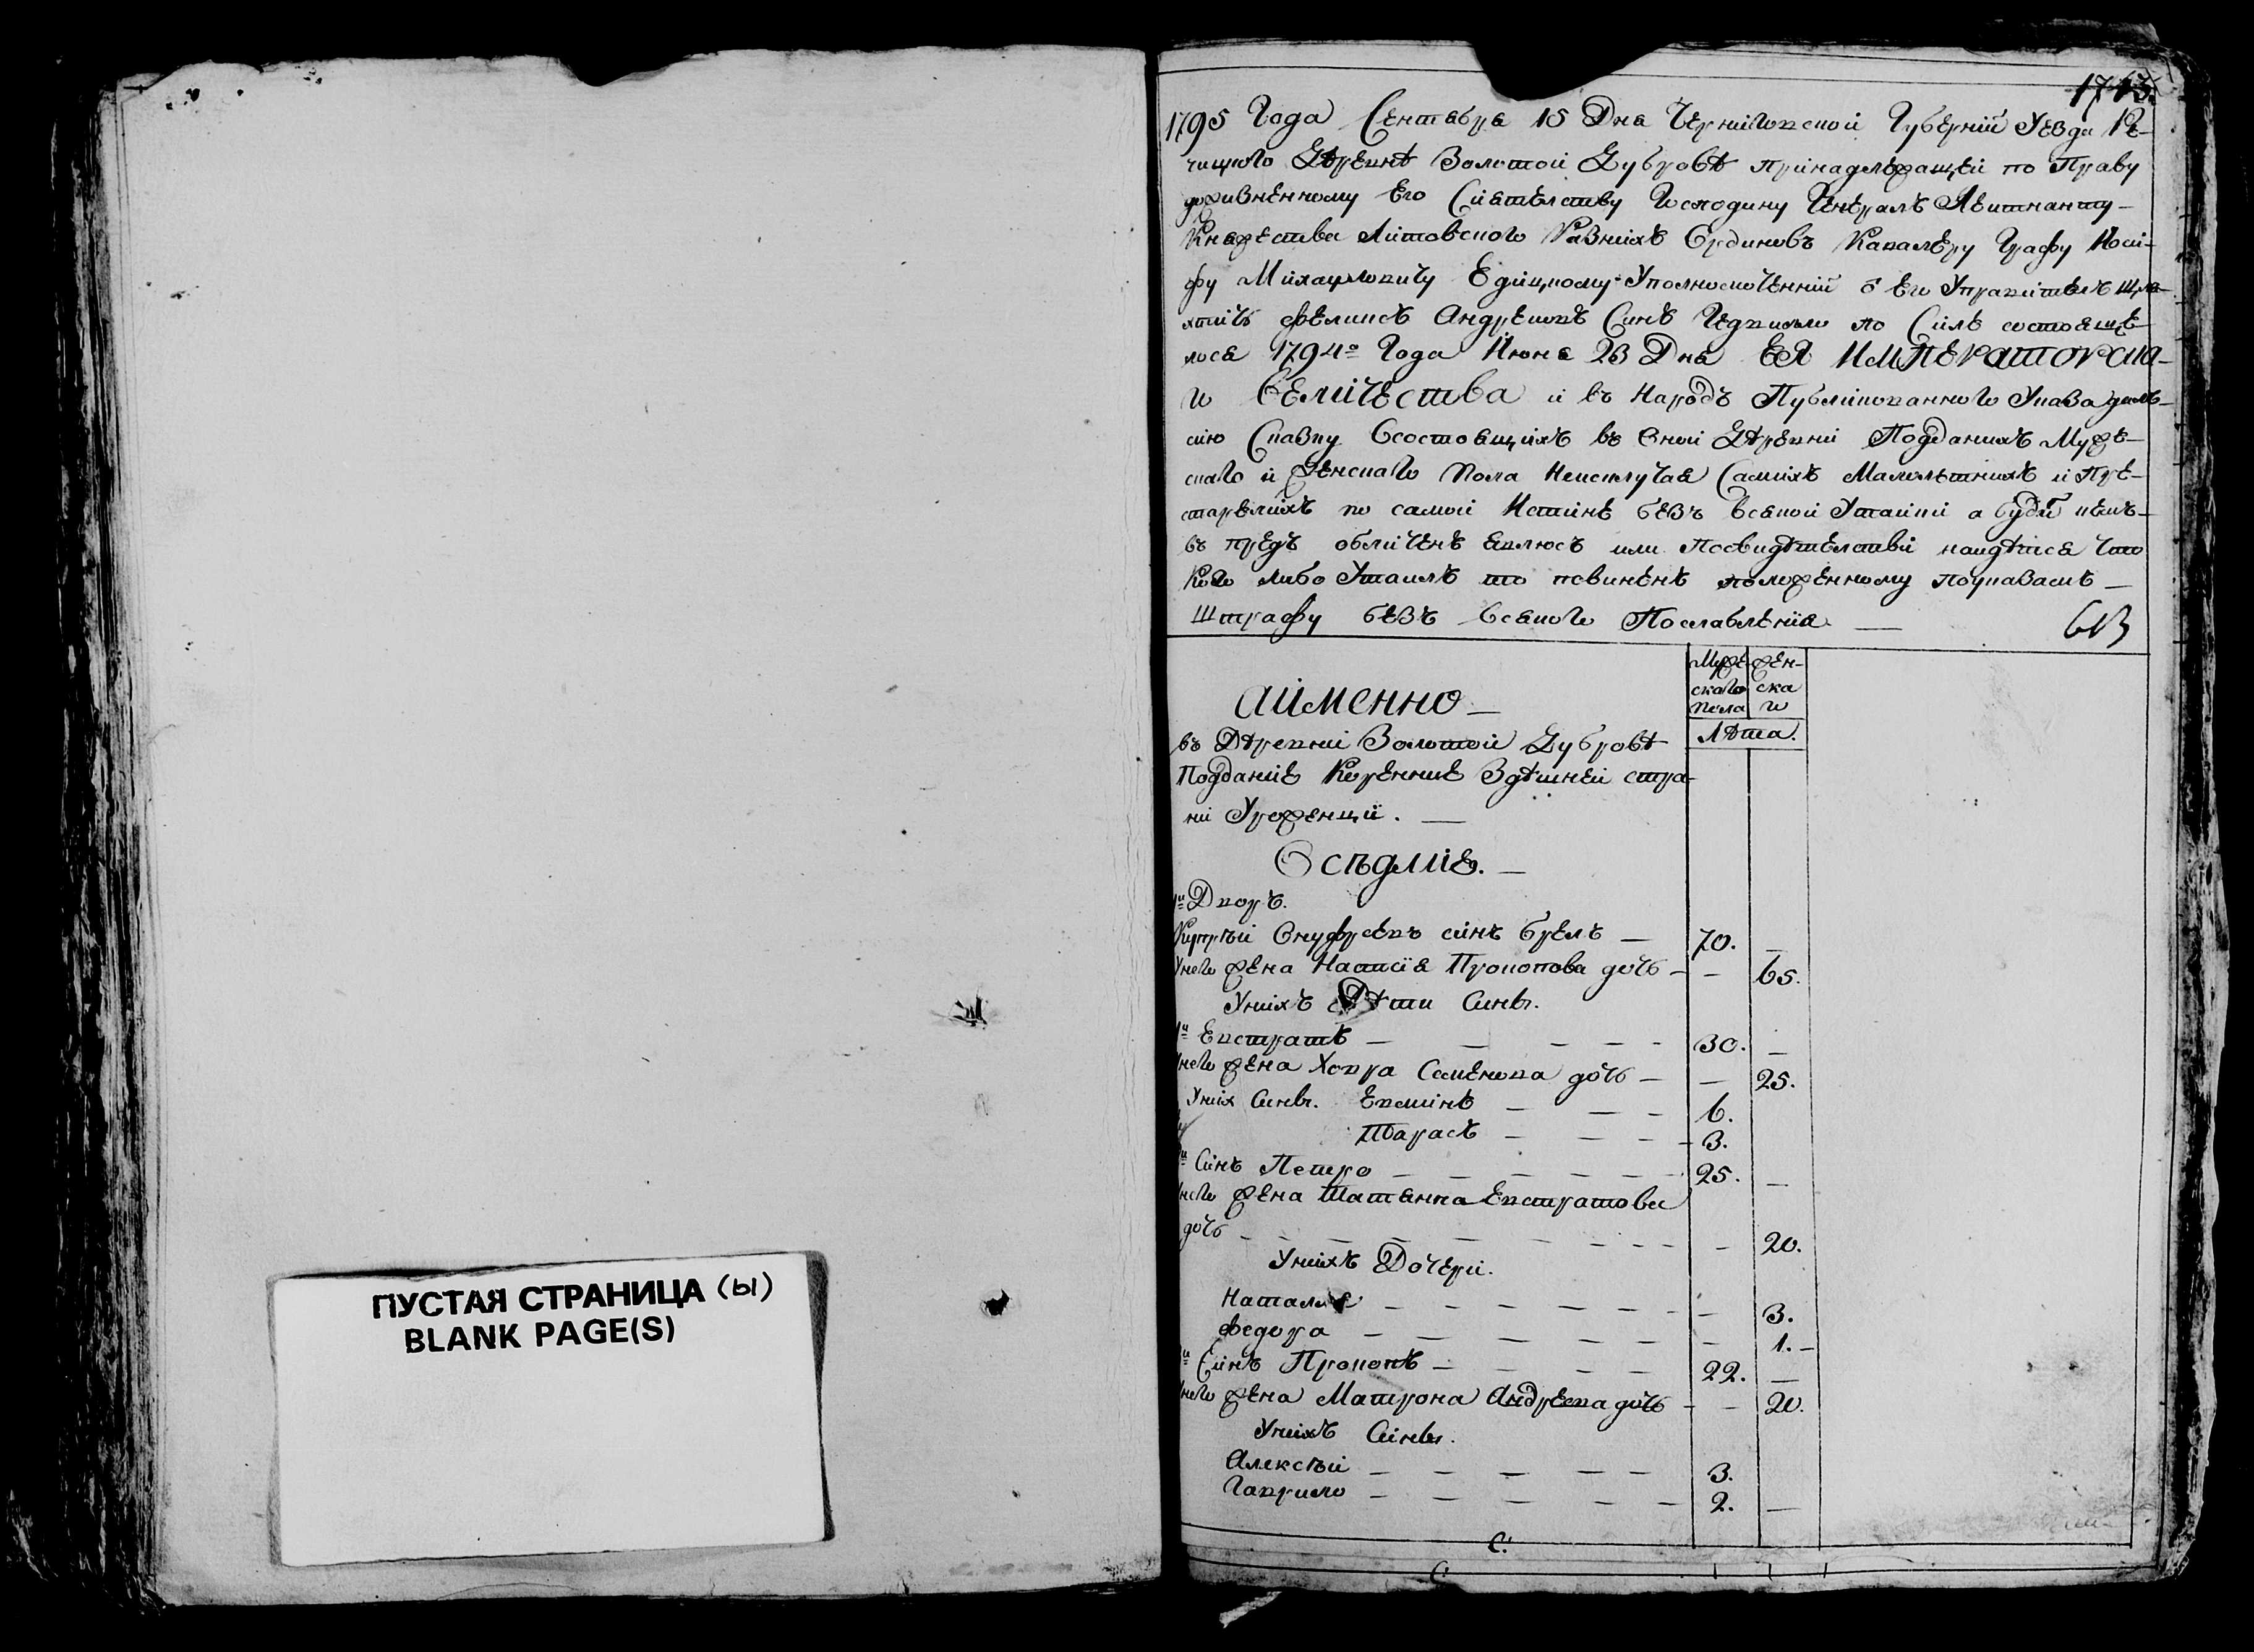 ПУСТАЯ СТРАНИЦА (ы)
BLANK PAGE(S)
1795 Года Сентября 15 Дня Черниговской Губернии Уезда Ре-
чицкого Дѣревнѣ Золотой Дубровѣ принадлежащей по Праву
Его Сиятелству Господину Генералъ Леитнанту
Княжества Литовского Разнихъ Ординовъ Кавалеру Графу Иоси-
фу Михаиловичу Уполномоченний Его Управителъ Шля-
хтичъ Феликсъ Андреиовъ Синъ по Силѣ состояще-
лося 1794го Года Июня 23 Дня ЕЯ ИМПЕРАТОРСКА-
го ВЕЛИЧЕСТВА и въ Народъ Публикованного Указа далъ
сию Сказку Осостоящихъ въ Оной Дѣревни Подданихъ Муже-
скаго и Женскаго Пола Неисключая Самихъ Малилѣтнихъ и Пре-
старелихъ по самой Истинѣ безъ всякой Утайки а буди кемъ
въ предъ обличенъ явлюсъ или Посвидѣтелстви наидѣтся что
Кого либо Утаилъ то повиненъ положенному поуказамъ
Штрафу безъ всякого Пославления
аИменно
Муже-
скаго
Пола
Жен-
ска
го
Лѣта.
въ Дѣревни Золотой Дубровѣ
Поддание Коренние Здѣшней стра-
ни Уроженци.
Осѣдлие.
1й Дворъ.
Онуфреевъ синъ 70.
Унего жена Настсия Прокопова дочь 65.
Унихъ Дѣти Сини.
1й Евстратъ 30.
Унего жена Ховра Семенова дочь 25.
Уних Сини. Евминъ 6.
Тарасъ 3.
Синъ Петро 25.
Унего жена Татянна Евстратова
дочь 20.
Унихъ Дочери.
Наталия 3.
Федора 1.
Синъ Прокопъ 22.
Унего жена Матрона Андреева дочь 20.
Унихъ Сини.
Алексѣй 3.
Гаврило 2.